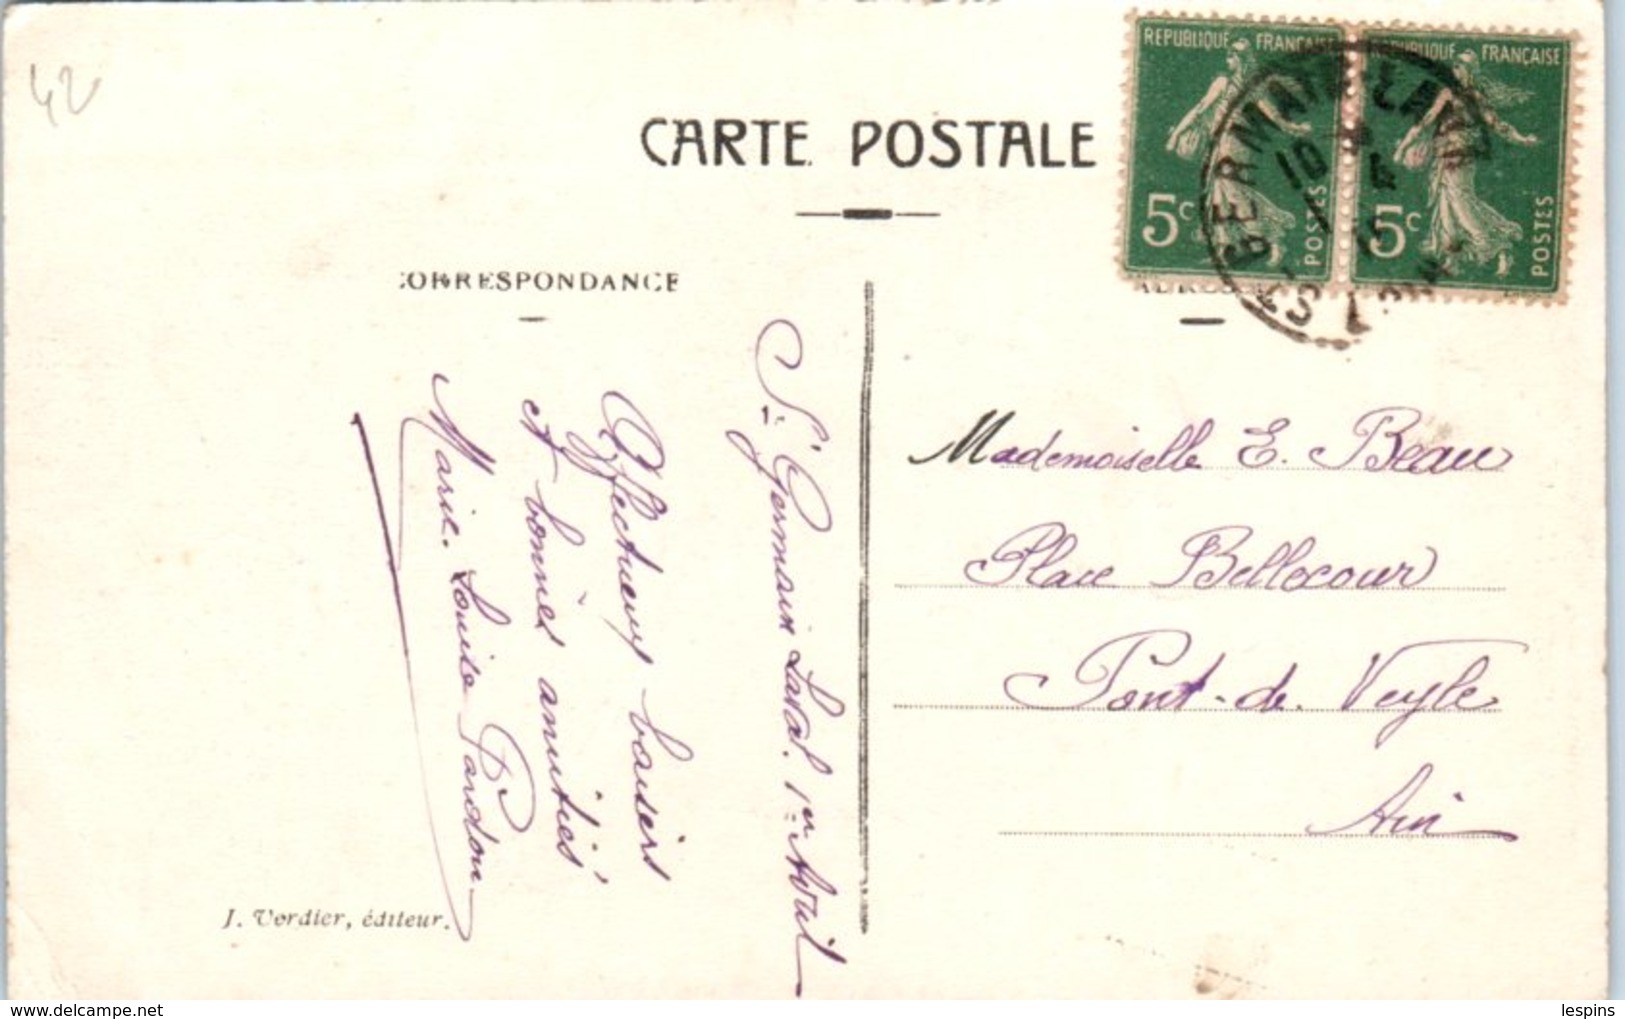 42
CARTE POSTALE
REPUBLIQUE FRANÇAISE
5c
POSTES
REPUBLIQUE FRANÇAISE
5c
POSTES
ST GERMAIN-LAVAL
LOIRE
10
1 4
CORRESPONDANCE
St Germain Laval. 1er Avril
Affectueux baisers
et bonnes amitiés
Marie. Louise Pardon
Mademoiselle E. Beau
Place Bellecour
Pont-de-Veyle
Ain
J. Verdier, éditeur.
lespins